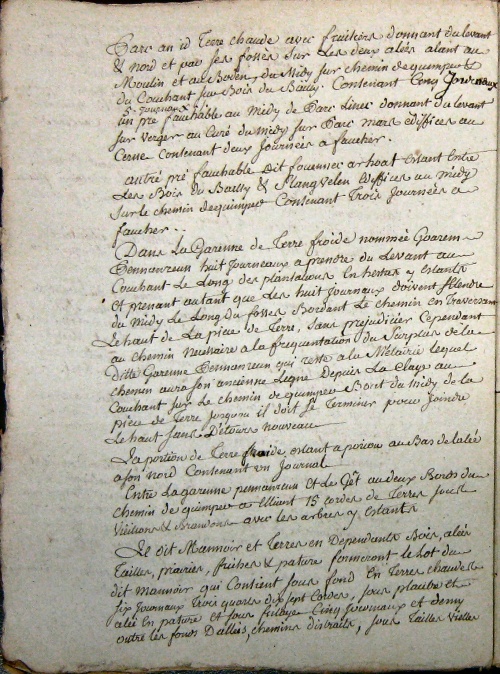 Parc an id Terre chaude avec fruitiers donnant du levant
& nord et par ses fossés sur les deux alées alant au
Moulin et au du Midy sur chemin dequimper &
du Couchant sur Bois du Bailly. Contenant Cinq Journaux
5. journaux
un pre fauchable au midy de Parc donnant du levant
sur verger au Curé du midy sur Parc mars Ediffices au
Cerne contenant deux Journées a faucher.
autre pré fauchable dit fouennec arhoat Estant Entre
Les Bois du Bailly & Stangvelen Ediffices au midy
sur le chemin dequimper Contenant Trois Journées a
faucher..
Dans la Garenne de Terre froide nommée Goarem
Pennanreun huit Journeaux a prendre du Levant au
Couchant Le Long des plantations y Estants
et prenant autant que Les huit Journaux doivent Etendre
du midy Le Long du fossés Bordant Le chemin en Traversant
Le haut de La pièce de Terre, sans prejudicier Cependant
au chemin a la frequentation du Surplus de la
Ditte Garenne Pennanreun qui reste a la Métairie lequel
chemin aura son ancienne Ligne depuis La Claye au
Couchant sur Le chemin de quimper Bord du midy de la
pièce de Terre jusqu'ou il doit se Terminer pour Joindre
Le haut sans Détours nouveau
La portion de Terre froide, estant a au Bas de lalée
a son nord Contenant un Journal
Entre La garenne pennanreun et Le au deux Bords du
chemin de quimper 15 cordes de Terres sous
avec les arbres y Estants
Le dit Mannoir et Terres en Dependants Bois, alés
Tailles, prairies, friches & pature fermeront le Lot du
dit mannoir qui Contient sous fond En Terres chaudes
six Journaux Trois quarts dix sept Cordes, sous placitre et
alée En pature et sous Cinq Journaux et demy
outre les fonds chemins distraits, sous Tailles vielles